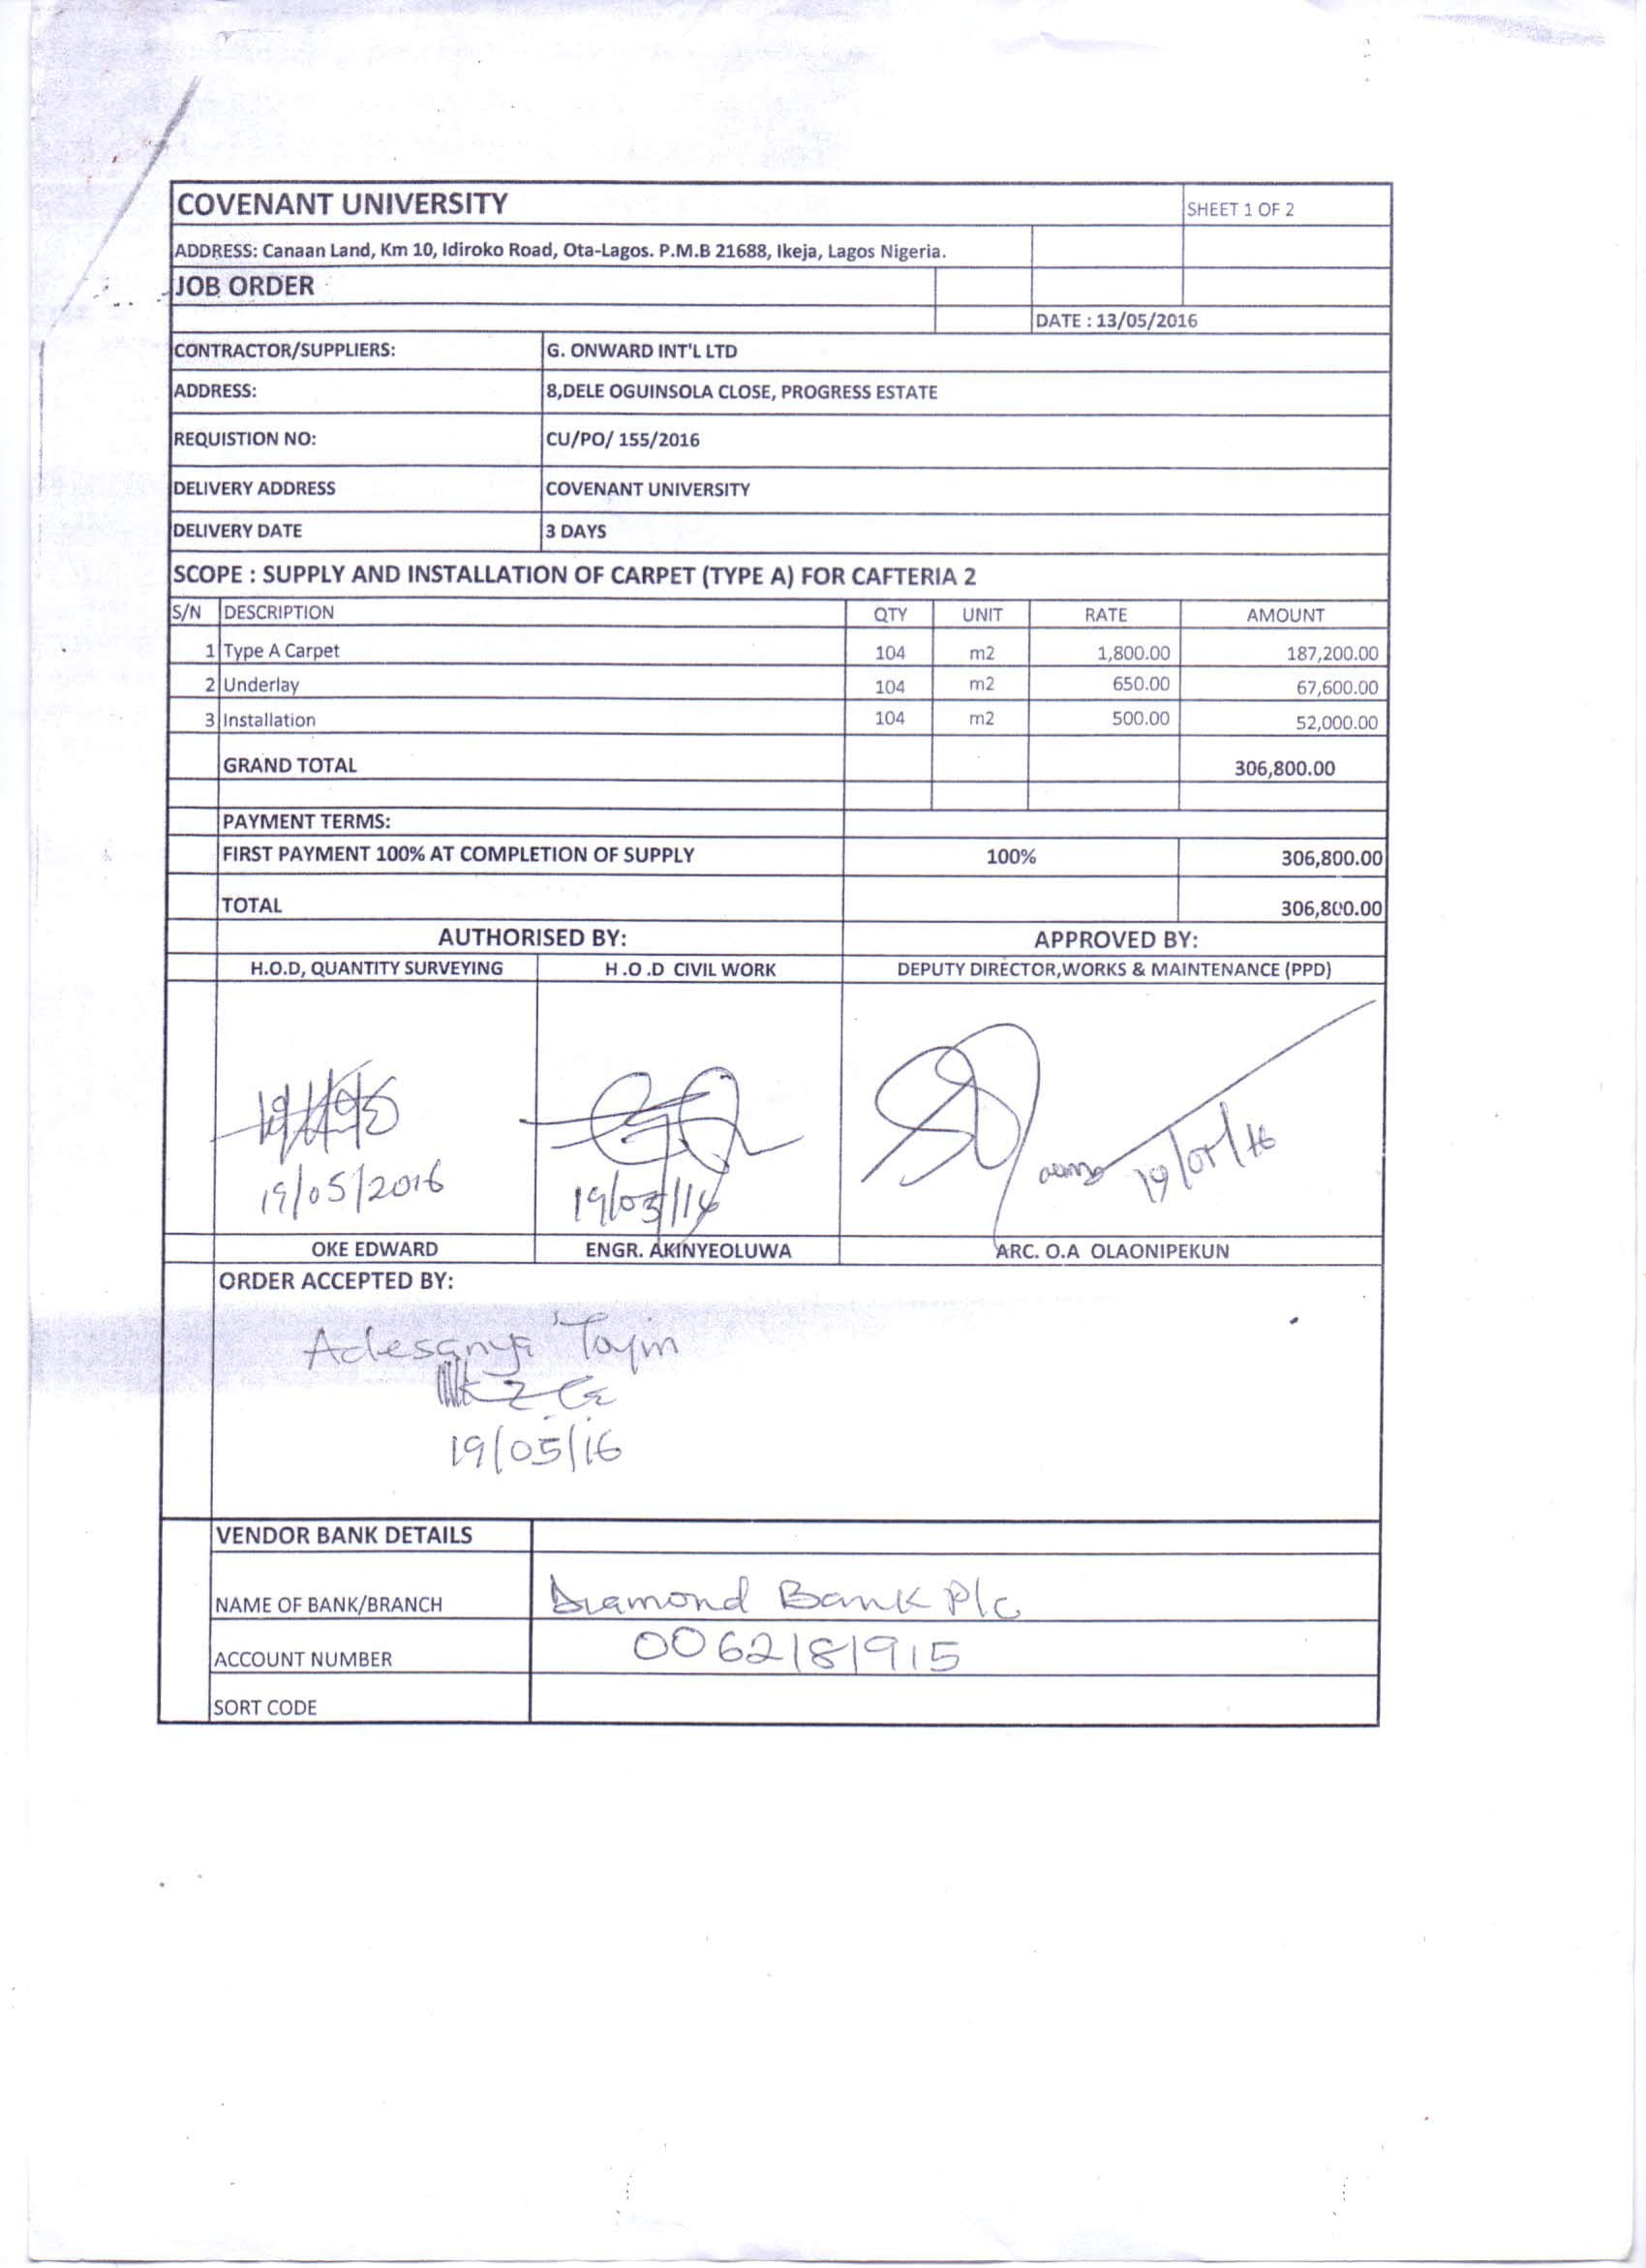 COVENANT UNIVERSITY
SHEET 1 OF 2
ADDRESS: Canaan Land, Km 10, Idiroko Road, Ota-Lagos. P.M.B 21688, Ikeja, Lagos Nigeria.
JOB ORDER
DATE : 13/05/2016
CONTRACTOR/SUPPLIERS: G. ONWARD INT'L LTD
ADDRESS: 8,DELE OGUINSOLA CLOSE, PROGRESS ESTATE
REQUISTION NO: CU/PO/ 155/2016
DELIVERY ADDRESS COVENANT UNIVERSITY
DELIVERY DATE 3 DAYS
SCOPE : SUPPLY AND INSTALLATION OF CARPET (TYPE A) FOR CAFTERIA 2
S/N DESCRIPTION QTY UNIT RATE AMOUNT
1 Type A Carpet 104 m2 1,800.00 187,200.00
2 Underlay 104 m2 650.00 67,600.00
3 Installation 104 m2 500.00 52,000.00
GRAND TOTAL 306,800.00
PAYMENT TERMS:
FIRST PAYMENT 100% AT COMPLETION OF SUPPLY 100% 306,800.00
TOTAL 306,800.00
AUTHORISED BY: APPROVED BY:
H.O.D, QUANTITY SURVEYING H .O .D CIVIL WORK DEPUTY DIRECTOR,WORKS & MAINTENANCE (PPD)
19/05/2016 19/05/16
OKE EDWARD ENGR. AKINYEOLUWA ARC. O.A OLAONIPEKUN
ORDER ACCEPTED BY:
Adesanya
19/05/16
VENDOR BANK DETAILS
NAME OF BANK/BRANCH Diamond Bank Plc
ACCOUNT NUMBER 0062181915
SORT CODE